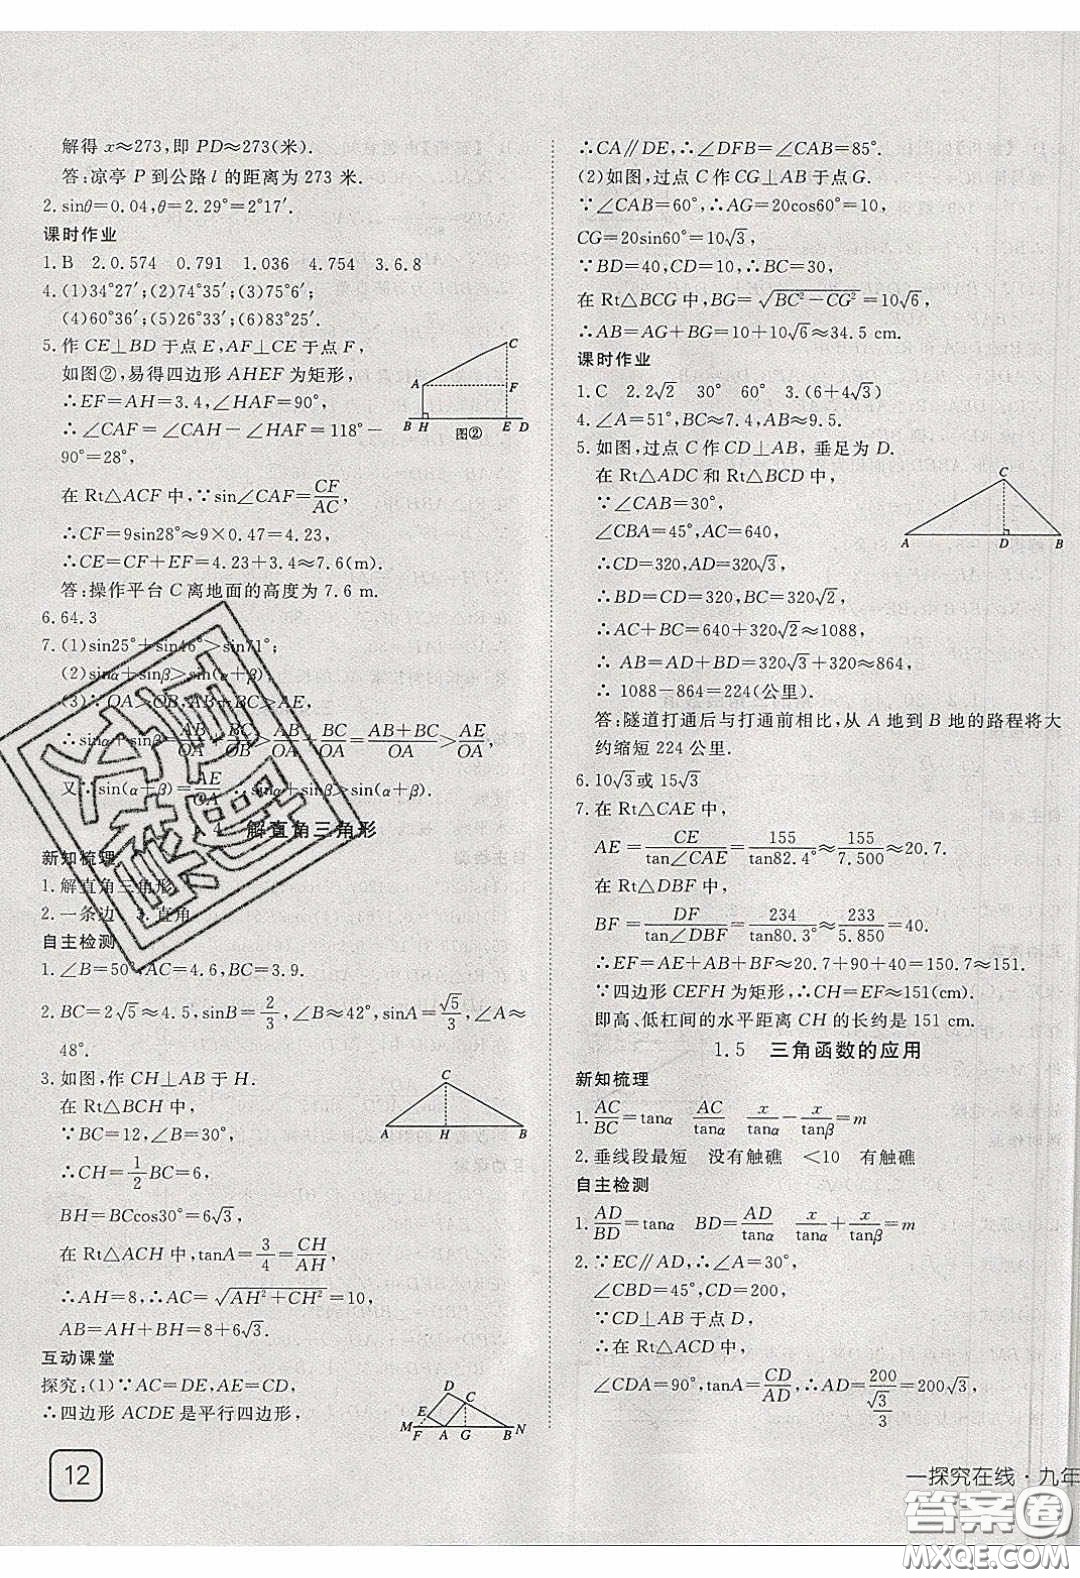 解得 x≈273,即 PD≈273(米).
答:凉亭 P 到公路 l 的距离为 273 米.
2.sinθ=0.04,θ=2.29°=2°17′.
课时作业
1.B 2.0.574 0.791 1.036 4.754 3.6.8
4.(1)34°27′;(2)74°35′;(3)75°6′;
(4)60°36′;(5)26°33′;(6)83°25′.
5.作 CE⊥BD 于点 E,AF⊥CE 于点 F,
如图②,易得四边形 AHEF 为矩形,
∴EF=AH=3.4,∠HAF=90°,
∴∠CAF=∠CAH-∠HAF=118°-
90°=28°,
在 Rt△ACF 中,∵sin∠CAF=CF/AC,
∴CF=9sin28°≈9×0.47=4.23,
∴CE=CF+EF=4.23+3.4≈7.6(m).
答:操作平台 C 离地面的高度为 7.6 m.
C
A
F
B H 图② E D
6.64.3
7.(1)sin25°+sin46°>sin71°;
(2)sinα+sinβ>sin(α+β);
(3)∵OA>OB,AB+BC>AE,
∴sinα+sinβ=AB/OA+BC/OB>AB/OA+BC/OA=(AB+BC)/OA>AE/OA,
又∵sin(α+β)=AE/OA,∴sinα+sinβ>sin(α+β).
1.4 解直角三角形
新知梳理
1.解直角三角形
2.一条边 3.直角
自主检测
1.∠B=50°,AC=4.6,BC=3.9.
2.BC=2√5≈4.5,sinB=2/3,∠B≈42°,sinA=√5/3,∠A≈
48°.
3.如图,作 CH⊥AB 于 H.
在 Rt△BCH 中,
∵BC=12,∠B=30°,
∴CH=1/2BC=6,
BH=BCcos30°=6√3,
在 Rt△ACH 中,tanA=3/4=CH/AH,
∴AH=8,∴AC=√(AH²+CH²)=10,
AB=AH+BH=8+6√3.
C
A H B
互动课堂
探究:(1)∵AC=DE,AE=CD,
∴四边形 ACDE 是平行四边形,
D
E C
M F A G B N
12
∴CA∥DE,∴∠DFB=∠CAB=85°.
(2)如图,过点 C 作 CG⊥AB 于点 G.
∵∠CAB=60°,∴AG=20cos60°=10,
CG=20sin60°=10√3,
∵BD=40,CD=10,∴BC=30,
在 Rt△BCG 中,BG=√(BC²-CG²)=10√6,
∴AB=AG+BG=10+10√6≈34.5 cm.
课时作业
1.C 2.2√2 30° 60° 3.(6+4√3)
4.∠A=51°,BC≈7.4,AB≈9.5.
5.如图,过点 C 作 CD⊥AB,垂足为 D.
在 Rt△ADC 和 Rt△BCD 中,
∵∠CAB=30°,
∠CBA=45°,AC=640,
∴CD=320,AD=320√3,
∴BD=CD=320,BC=320√2,
∴AC+BC=640+320√2≈1088,
∴ AB=AD+BD=320√3+320≈864,
∴ 1088-864=224(公里).
答:隧道打通后与打通前相比,从 A 地到 B 地的路程将大
约缩短 224 公里.
C
A D B
6.10√3或 15√3
7.在 Rt△CAE 中,
AE=CE/tan∠CAE=155/tan82.4°≈155/7.500≈20.7.
在 Rt△DBF 中,
BF=DF/tan∠DBF=234/tan80.3°≈233/5.850≈40.
∴EF=AE+AB+BF≈20.7+90+40=150.7≈151.
∵四边形 CEFH 为矩形,∴CH=EF≈151(cm).
即高、低杠间的水平距离 CH 的长约是 151 cm.
1.5 三角函数的应用
新知梳理
1.AC/BC=tanα AC/tanα x/tanα-x/tanβ=m
2.垂线段最短 没有触礁 <10 有触礁
自主检测
1.AD/BD=tanα BD=AD/tanα x/tanα+x/tanβ=m
2.∵EC∥AD,∴∠A=30°,
∠CBD=45°,CD=200,
∵CD⊥AB 于点 D,
∴在 Rt△ACD 中,
∠CDA=90°,tanA=CD/AD,∴AD=200/(√3/3)=200√3,
一探究在线·九年
答案圈
MXQE.COM